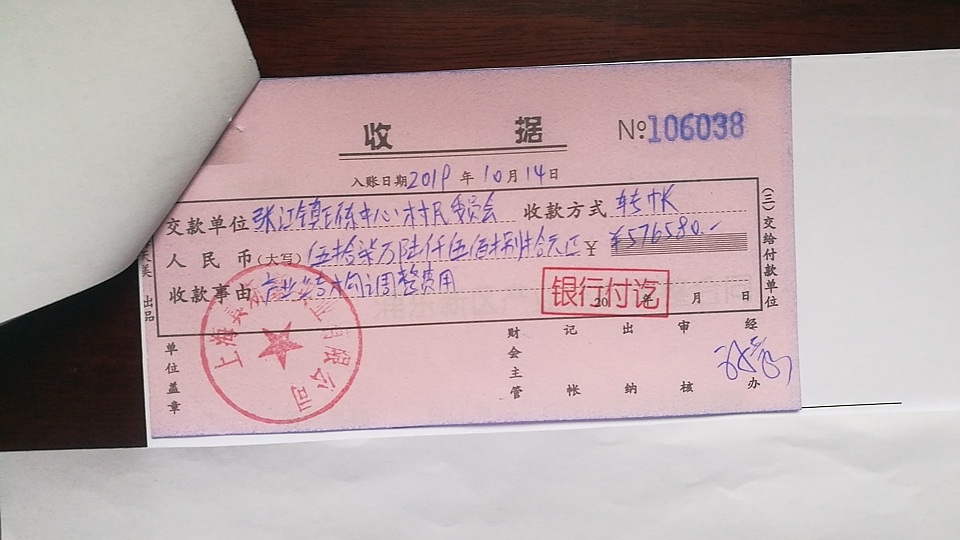 收 据 №106038
入账日期2019年10月14日
交款单位张江镇环东中心村民委员会 收款方式转帐
人民币(大写)伍拾柒万陆仟伍佰捌拾元正 ¥ ¥576580.-
收款事由 农业结构调整费用
银行付讫
20 年 月 日
(三)交给付款单位
出品
单位盖章
上海 有限公司
财会主管
记帐
出纳
审核
经办